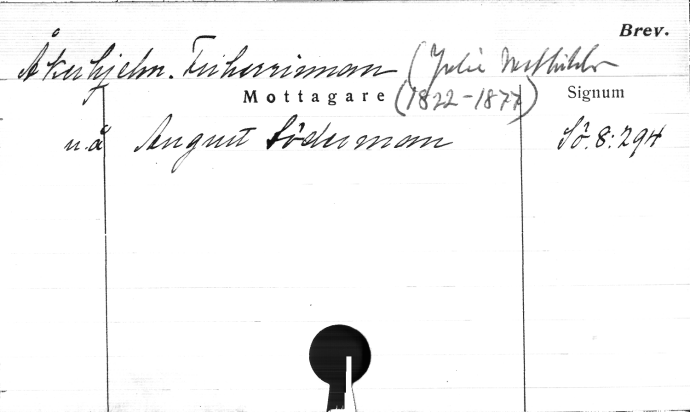 Brev.
Åkerhjelm. Friherrinnan (Julie Mathilda
Mottagare (1822-1877) Signum
u.å August Söderman Sö. 8:294